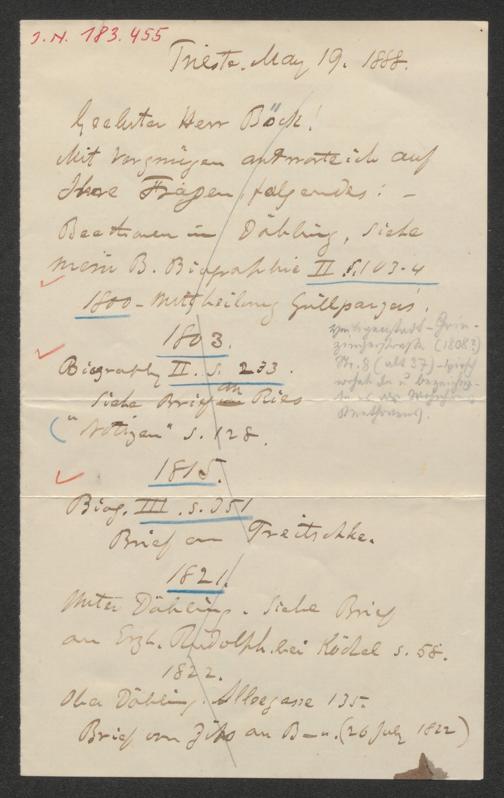 I.N. 183.455
Trieste. May 19. 1888.
Geehrter Herr Böck!
Mit Vergnügen antworte ich auf
Ihre Fragen folgendes: –
Beethoven in Döbling, siehe
mein B. Biographie II S. 103-4
1800 – Mittheilung Grillparzers.
1803.
Biography II. S. 233.
Siehe Brief an Ries
"Notizen" S. 128.
Heiligenstadt – Grin-
zingerstraße (1808?)
Nr. 8 (alt 37) –
Wohnung
Beethovens).
1815.
Biog. III. S. 351
Brief an Treitschke.
1821.
Unter Döbling. Siehe Brief
an Erzh. Rudolph. bei Köchel S. 58.
1822.
Ober Döbling. Alleegasse 135.
Brief von an B–n. (26 July 1822)